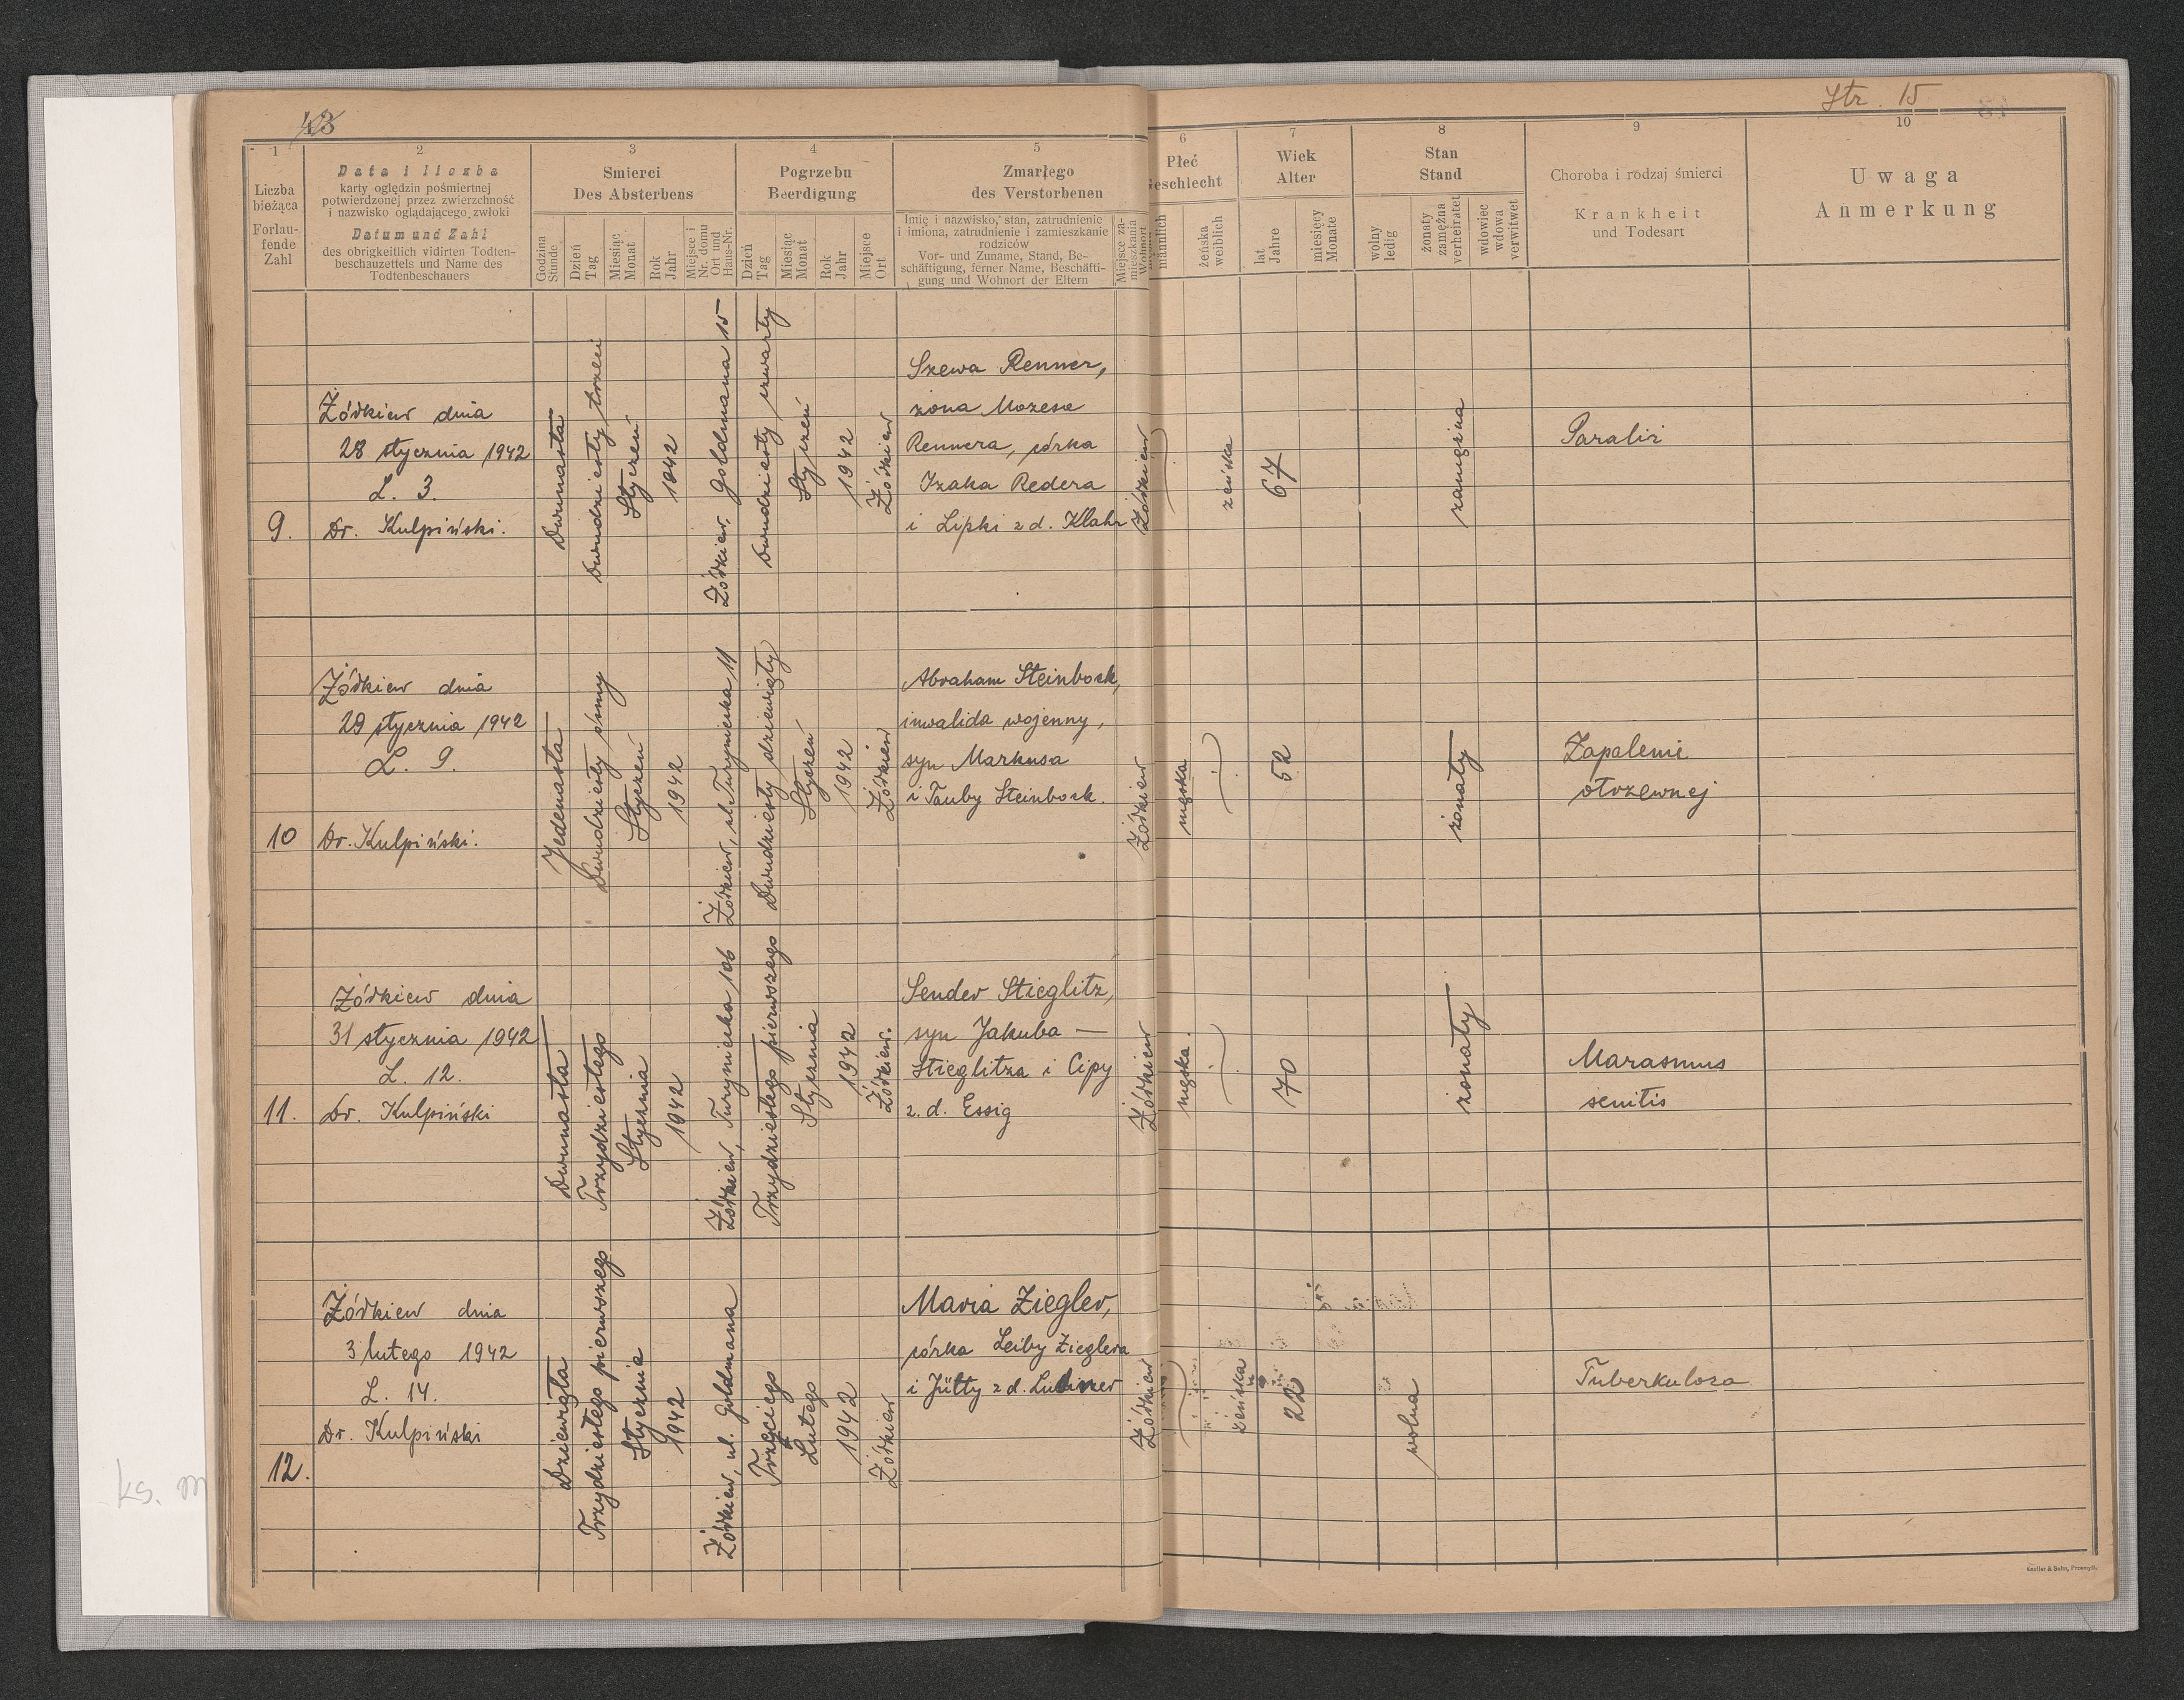 43
Str. 15
1
Liczba
bieżąca
Forlau-
fende
Zahl
2
Data i liczba
karty oględzin pośmiertnej
potwierdzonej przez zwierzchność
i nazwisko oglądającego zwłoki
Datum und Zahl
des obrigkeitlich vidirten Todten-
beschauzettels und Name des
Todtenbeschauers
3
Smierci
Des Absterbens
Godzina
Stunde
Dzień
Tag
Miesiąc
Monat
Rok
Jahr
Miejsce i
Nr. domu
Ort und
Haus-Nr.
4
Pogrzebu
Beerdigung
Dzień
Tag
Miesiąc
Monat
Rok
Jahr
Miejsce
Ort
5
Zmarłego
des Verstorbenen
Imię i nazwisko, stan, zatrudnienie
i imiona, zatrudnienie i zamieszkanie
rodziców
Vor- und Zuname, Stand, Be-
schäftigung, ferner Name, Beschäfti-
gung und Wohnort der Eltern
Miejsce za-
mieszkania
Wohnort
6
Płeć
Geschlecht
männlich
żeńska
weiblich
7
Wiek
Alter
lat
Jahre
miesięcy
Monate
8
Stan
Stand
wolny
ledig
żonaty
zamężna
verheiratet
wdowiec
wdowa
verwitwet
9
Choroba i rodzaj śmierci
Krankheit
und Todesart
10
Uwaga
Anmerkung
9.
Żółkiew dnia
28 stycznia 1942
L. 3.
Dr. Kulpiński.
Dwunasta
Dwudziesty trzeci
Styczeń
1942
Żółkiew, Goldmana 15
Dwudziesty czwarty
Styczeń
1942
Żółkiew
Szewa Renner,
żona Mozesa
Rennera, córka
Izaka Redera
i Lipki z d. Klahr
Żółkiew
żeńska
67
zamężna
Paraliż
10
Żółkiew dnia
29 stycznia 1942
L. 9.
Dr. Kulpiński.
Jedenasta
Dwudziesty ósmy
Styczeń
1942
Żółkiew, ul. Turyniecka 11
Dwudziesty dziewiąty
Styczeń
1942
Żółkiew
Abraham Steinbock,
inwalida wojenny,
syn Markusa
i Tauby Steinbock.
Żółkiew
męska
52
żonaty
Zapalenie
otrzewnej
11.
Żółkiew dnia
31 stycznia 1942
L. 12.
Dr. Kulpiński
Dwunasta
Trzydziestego
Stycznia
1942
Żółkiew, Turyniecka 106
Trzydziestego pierwszego
Stycznia
1942
Żółkiew.
Sender Stieglitz,
syn Jakuba —
Stieglitza i Cipy
z. d. Essig
Żółkiew
męska.
70
żonaty
Marasmus
senilis
12.
Żółkiew dnia
3 lutego 1942
L. 14.
Dr. Kulpiński
Dziewiąta
Trzydziestego pierwszego
Stycznia
1942
Żółkiew, ul. Goldmana
Trzeciego
Lutego
1942
Żółkiew
Maria Ziegler,
córka Leiby Zieglera
i Jütty z d.
Żółkiew
żeńska
22
wolna
Tuberkuloza
ks. m